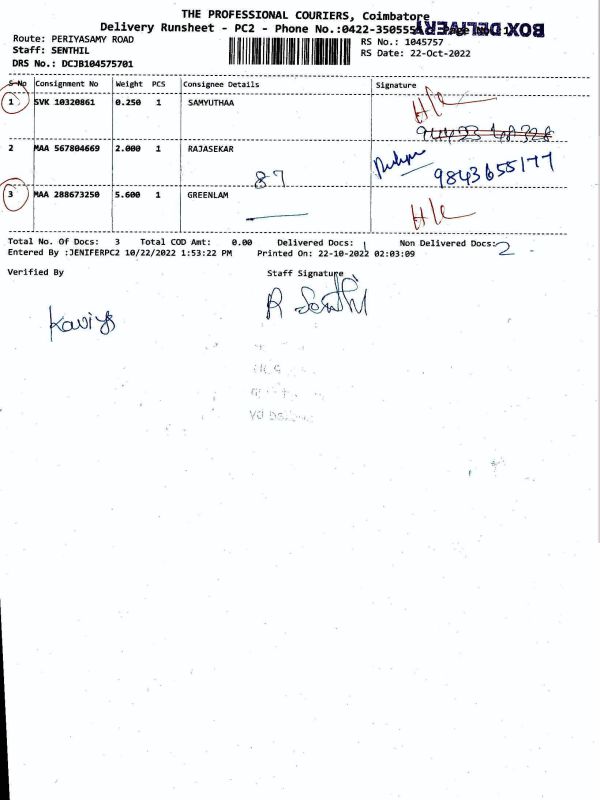 THE PROFESSIONAL COURIERS, Coimbatore
Delivery Runsheet - PC2 - Phone No.:0422-350555
BOX DELIVERY
Route: PERIYASAMY ROAD
RS No.: 1045757
Staff: SENTHIL
RS Date: 22-Oct-2022
DRS No.: DCJB104575701
S No Consignment No Weight PCS Consignee Details Signature
1 SVK 10320861 0.250 1 SAMYUTHAA
2 MAA 567804669 2.000 1 RAJASEKAR
87 9843655177
3 MAA 288673250 5.600 1 GREENLAM
Total No. Of Docs: 3 Total COD Amt: 0.00 Delivered Docs: 1 Non Delivered Docs: 2
Entered By :JENIFERPC2 10/22/2022 1:53:22 PM Printed On: 22-10-2022 02:03:09
Verified By Staff Signature
R Senthil